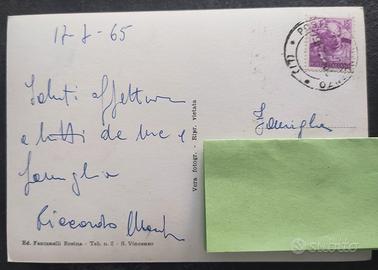 17-8-65
Saluti affettuosi
a tutti da me e
famiglia
Riccardo
Famiglia
Vera fotogr. - Ripr. vietata
Ed. Fontanelli Rosina - Tab. n. 2 - S. Vincenzo
subito